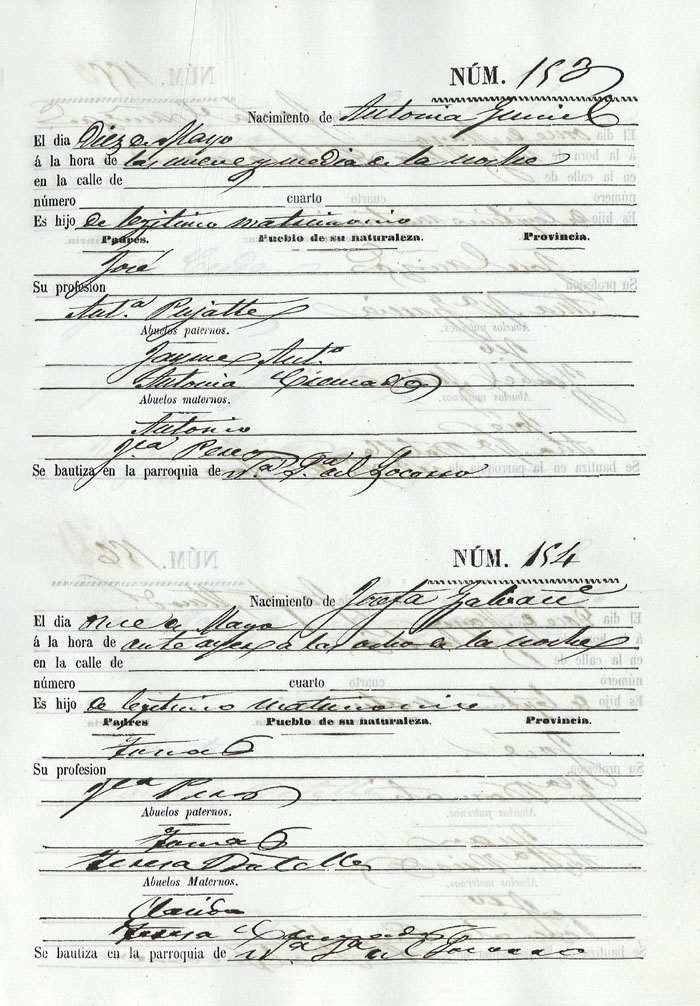 NÚM. 153
Nacimiento de Antonia
El dia Diez de Mayo
á la hora de las nueve y media de la noche
en la calle de
número cuarto
Es hijo de legitimo matrimonio
Padres. Pueblo de su naturaleza. Provincia.
José
Su profesion
Ant.ª Pujalte
Abuelos paternos.
Jayme Ant.º
Antonia
Abuelos maternos.
Antonio
Perez
Se bautiza en la parroquia de N.ª S.ª del Socorro
NÚM. 154
Nacimiento de Josefa Galvañ
El dia once de Mayo
á la hora de ante ayer a las ocho de la noche
en la calle de
número cuarto
Es hijo de legitimo matrimonio
Padres Pueblo de su naturaleza. Provincia.
Tomas
Su profesion
Perez
Abuelos paternos.
Tomas
Teresa Botella
Abuelos Maternos.
Teresa
Se bautiza en la parroquia de N.ª S.ª del Socorro